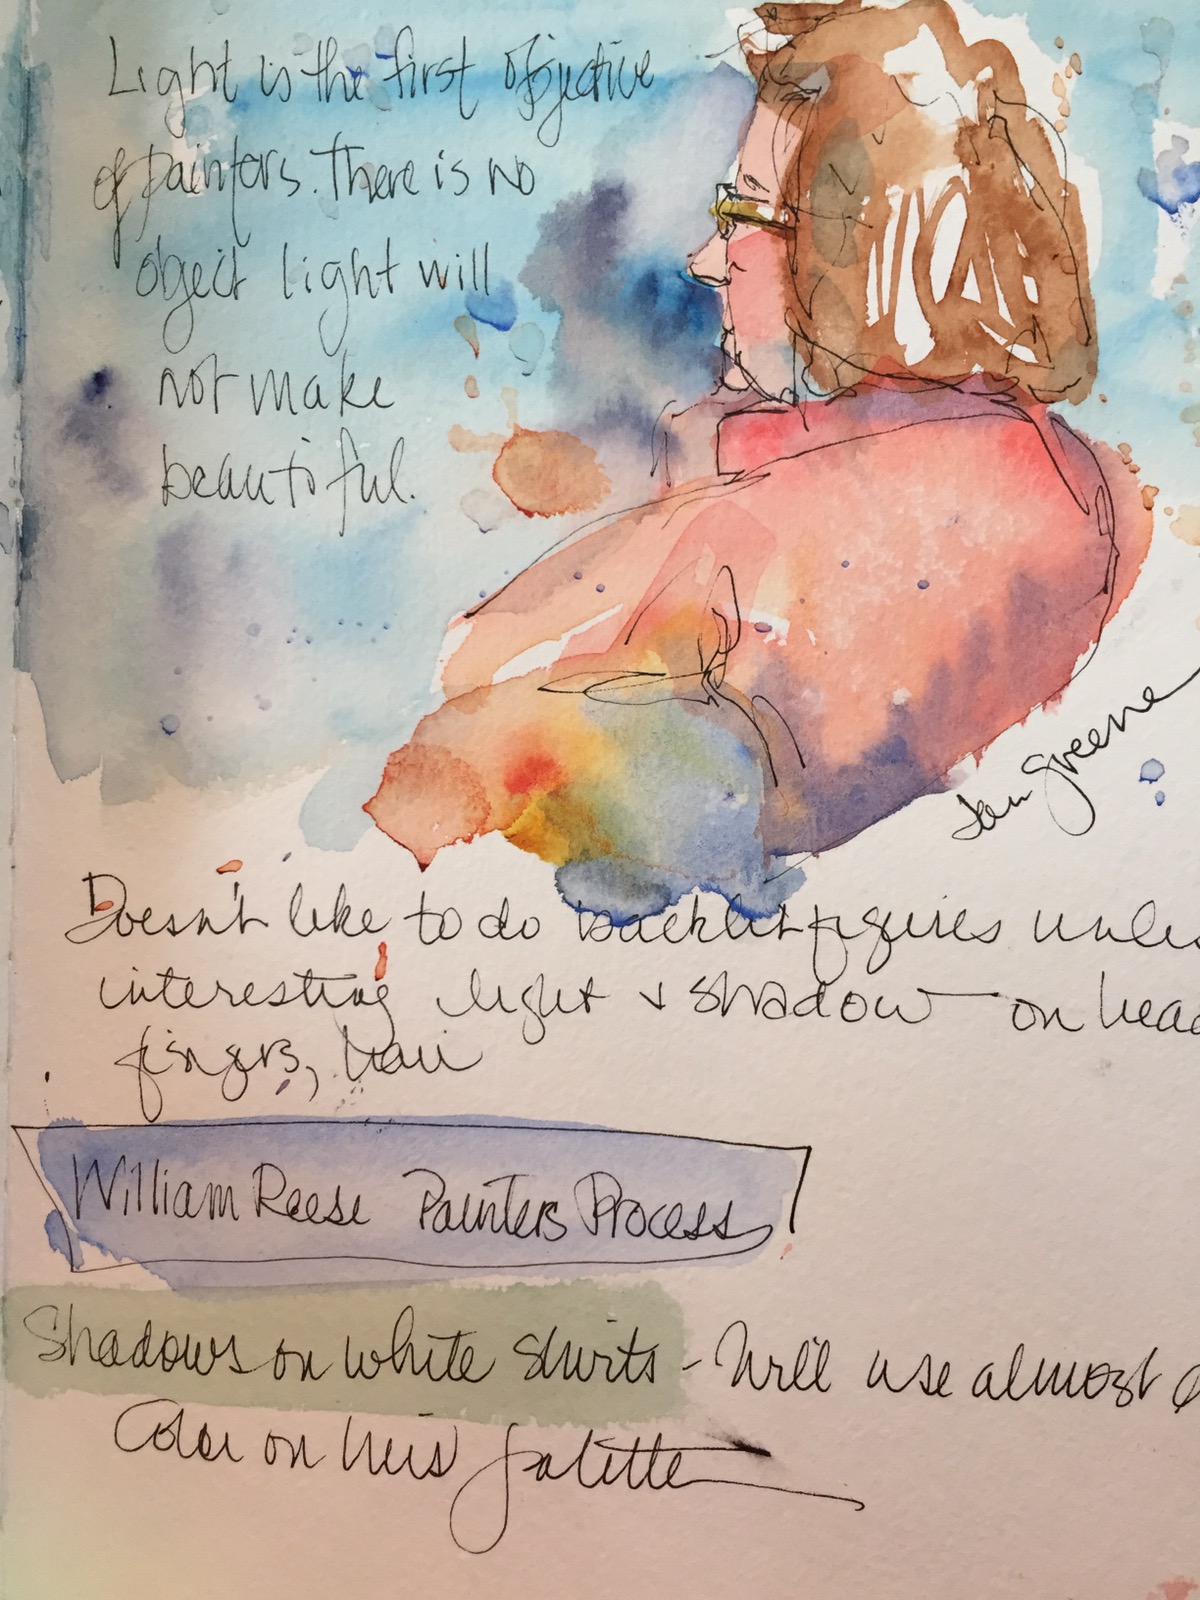 Light is the first objective
of painters. There is no
object light will
not make
beautiful.
Greene
Doesn't like to do backlit figures unles
interesting light & shadow - on head
fingers, hair
William Reese Painters Process
Shadows on white shirts - He'll use almost
Color on his palette